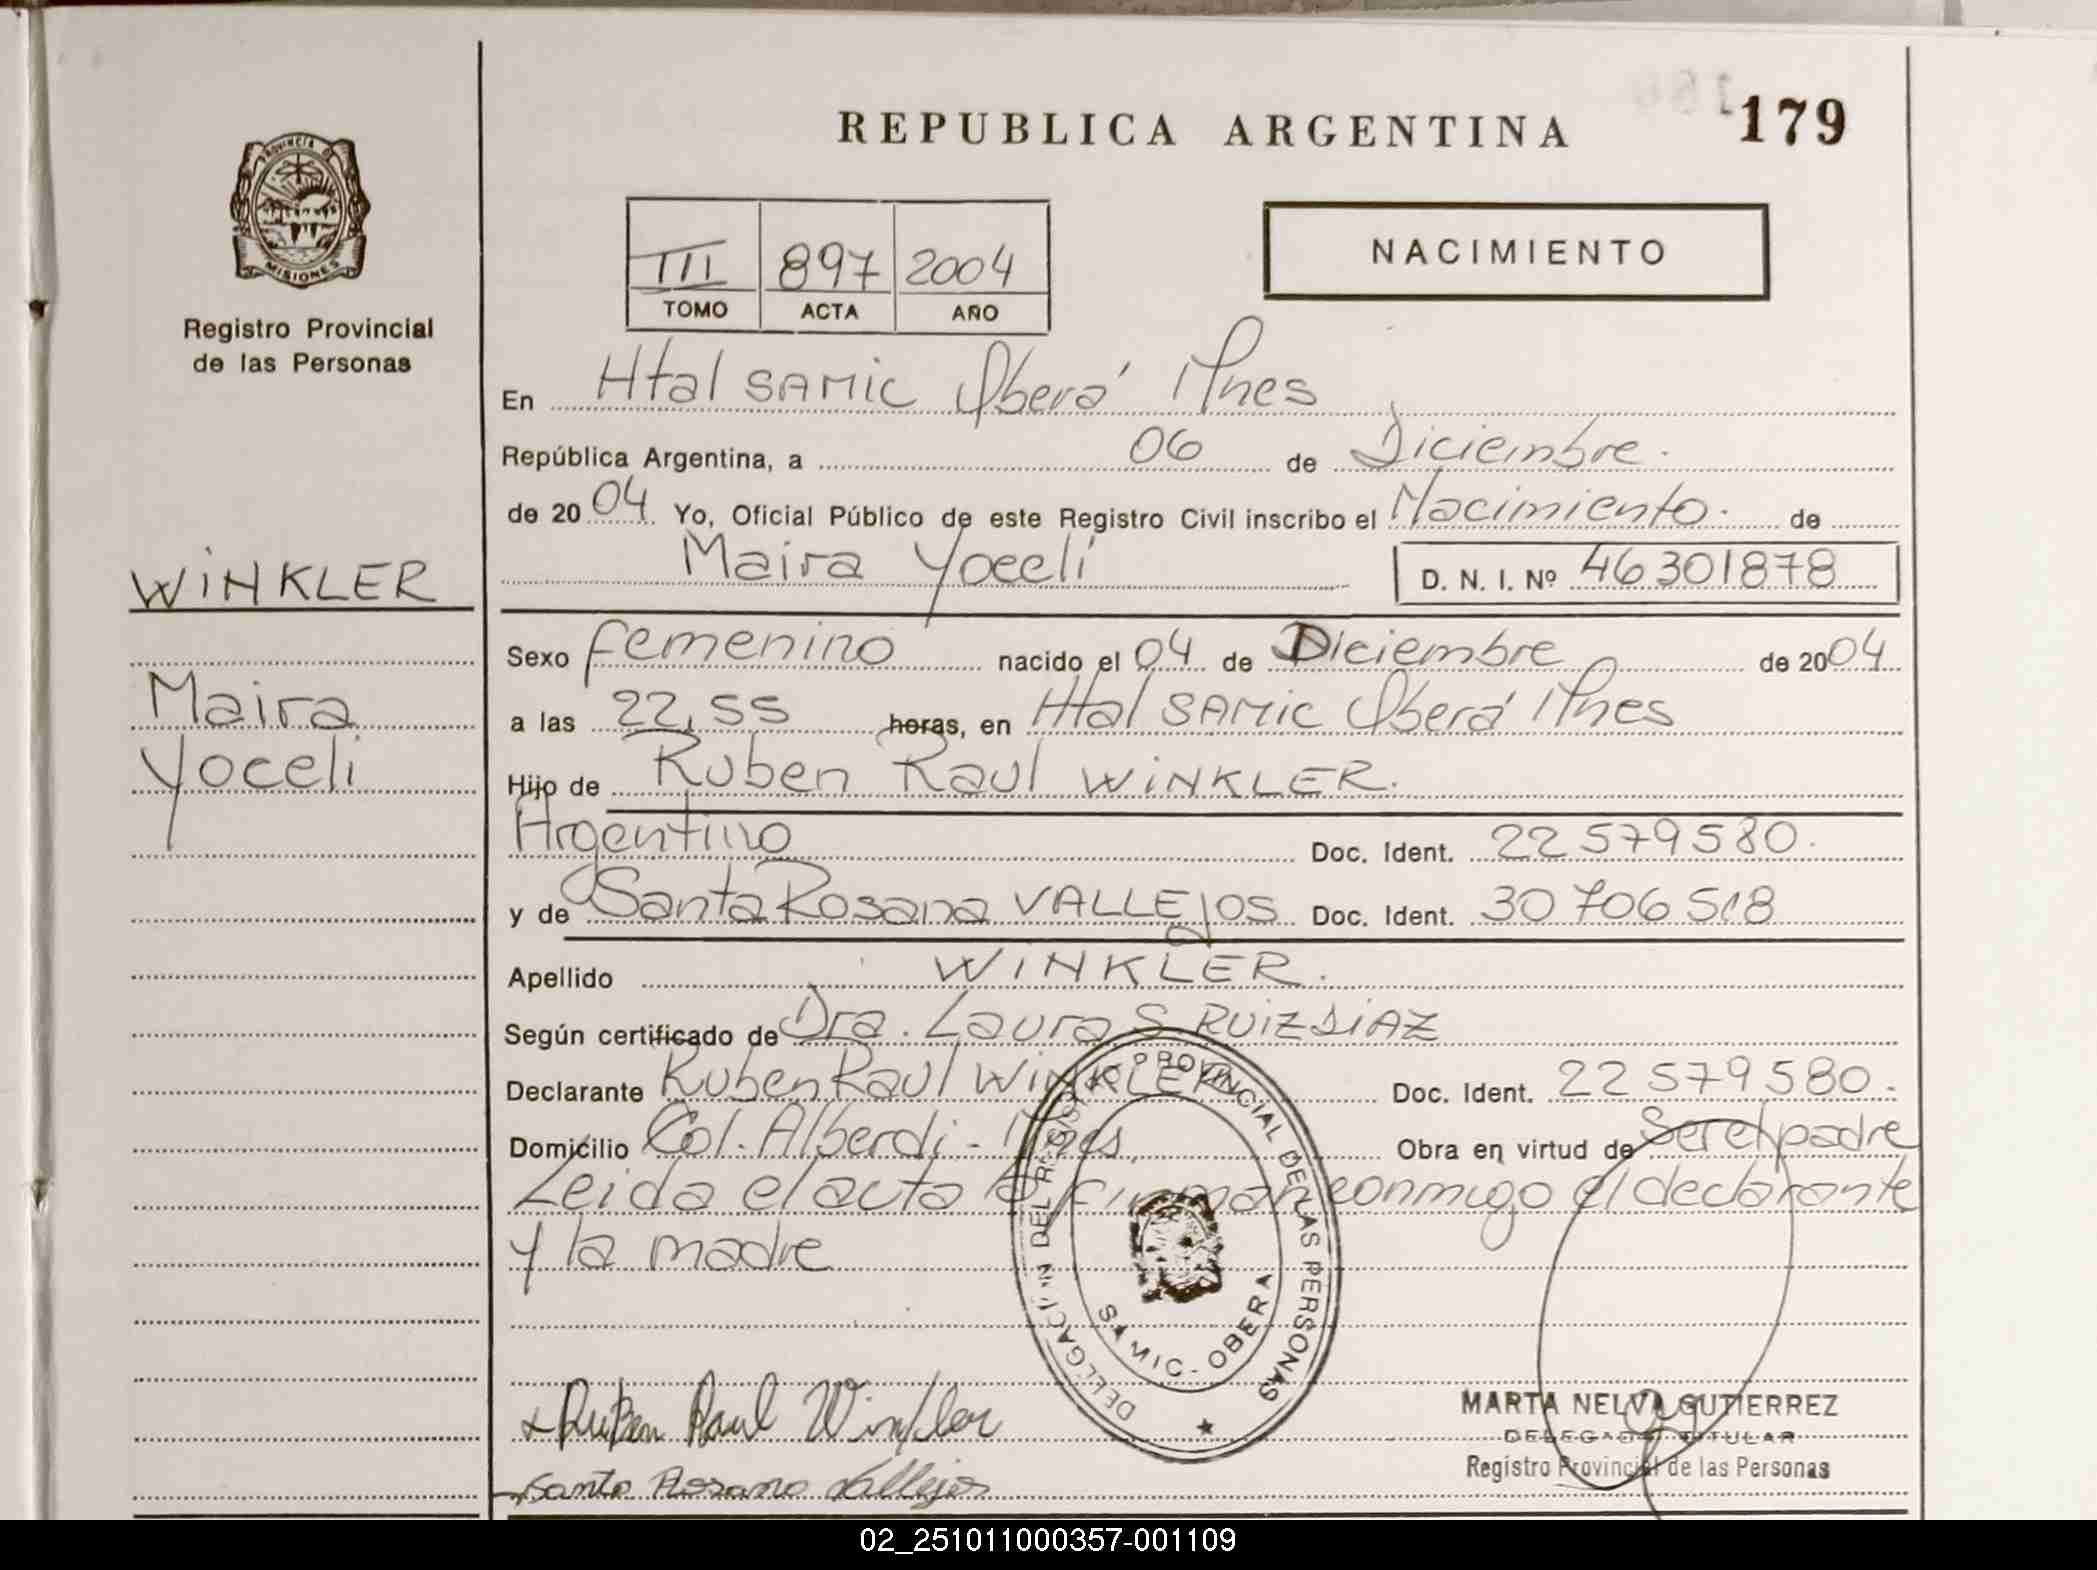 REPUBLICA ARGENTINA
179
PROVINCIA DE
MISIONES
Registro Provincial
de las Personas
III 897 2004
TOMO ACTA AÑO
NACIMIENTO
En Htal SAMIC Oberá Mnes
República Argentina, a 06 de Diciembre.
de 2004. Yo, Oficial Público de este Registro Civil inscribo el Nacimiento. de
Maira Yoceli D. N. I. Nº 46301878
WINKLER
Maira
Yoceli
Sexo femenino nacido el 04 de Diciembre de 2004
a las 22,55 horas, en Htal SAMIC Oberá Mnes
Hijo de Ruben Raul WINKLER.
Argentino Doc. Ident. 22 579580.
y de Santa Rosana VALLEJOS Doc. Ident. 30 706 518
Apellido WINKLER.
Según certificado de Dra. Laura S. RUIZ DIAZ
Declarante Ruben Raul WINKLER Doc. Ident. 22 579580.
Domicilio Col. Alberdi - Mnes, Obra en virtud de Ser el padre
Leida el acta la firman conmigo el declarante
y la madre
DELEGACION DEL REGISTRO PROVINCIAL DE LAS PERSONAS
SAMIC - OBERA
Ruben Raul Winkler
Santa Rosana Vallejos
MARTA NELVA GUTIERREZ
DELEGADA TITULAR
Registro Provincial de las Personas
02_251011000357-001109